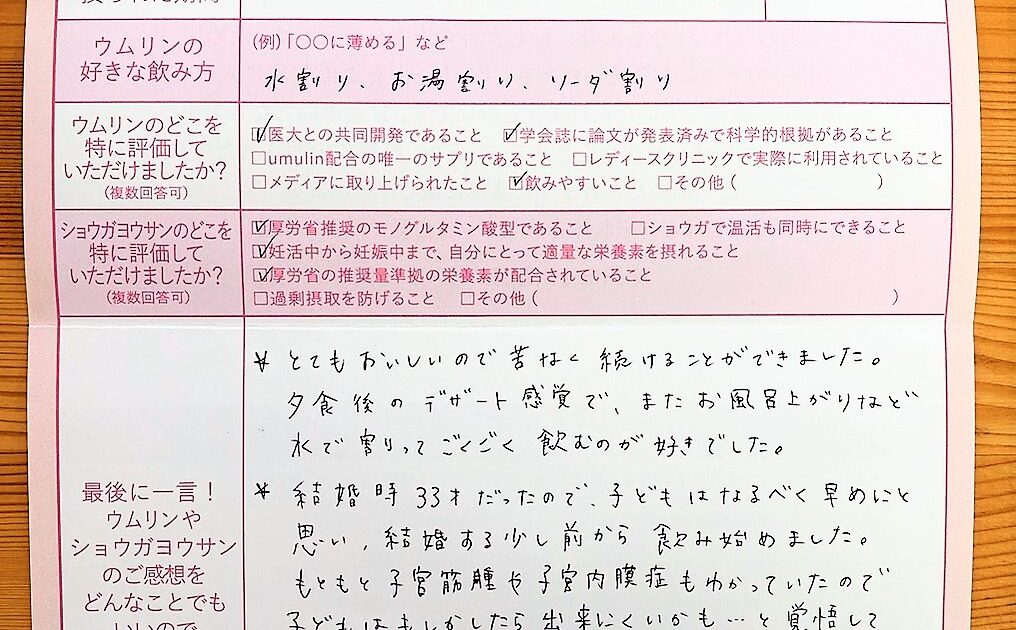 ウムリンの
好きな飲み方
(例)「〇〇に薄める」など
水割り、お湯割り、ソーダ割り
ウムリンのどこを
特に評価して
いただけましたか?
(複数回答可)
☑医大との共同開発であること ☑学会誌に論文が発表済みで科学的根拠があること
□umulin配合の唯一のサプリであること □レディースクリニックで実際に利用されていること
□メディアに取り上げられたこと ☑飲みやすいこと □その他( )
ショウガヨウサンのどこを
特に評価して
いただけましたか?
(複数回答可)
☑厚労省推奨のモノグルタミン酸型であること □ショウガで温活も同時にできること
☑妊活中から妊娠中まで、自分にとって適量な栄養素を摂れること
☑厚労省の推奨量準拠の栄養素が配合されていること
□過剰摂取を防げること □その他( )
最後に一言!
ウムリンや
ショウガヨウサン
のご感想を
どんなことでも
いいので
* とてもおいしいので苦なく続けることができました。
夕食後のデザート感覚で、またお風呂上がりなど
水で割ってごくごく飲むのが好きでした。
* 結婚時33才だったので、子どもはなるべく早めにと
思い、結婚する少し前から飲み始めました。
もともと子宮筋腫や子宮内膜症もわかっていたので
子どもはもしかしたら出来にくいかも…と覚悟して